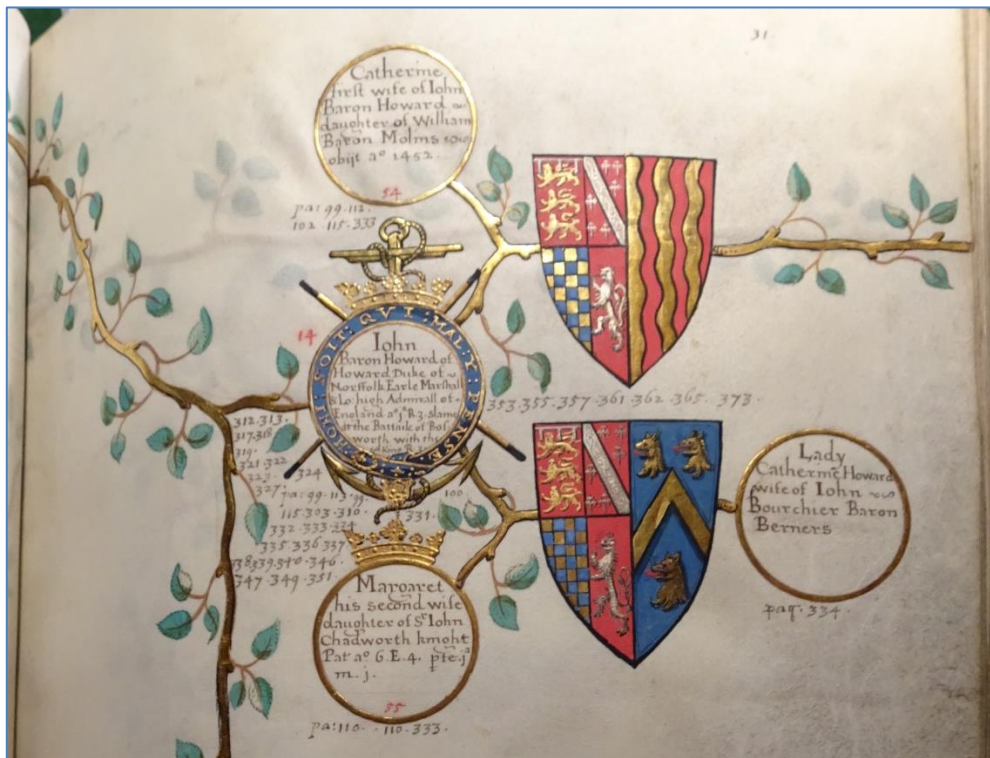 31.
Catherine
first wife of Iohn
Baron Howard
daughter of William
Baron Molms
obijt aº 1452.
54
pa: 99.112.
102.115.333
HONI: SOIT: QVI: MAL: Y: PENSE
14
Iohn
Baron Howard of
Howard Duke of
Norffolk Earle Marshall
& Lo: high Admirall of
England aº jº R.3. slaine
at the Battaile of Bos
worth with the
sd King R.3
353.355.357.361.362.365.373.
312.313.
317.318
319.
321.322
323. 324
327. pa: 99.113.
100.
115.303.310
331.
332.333.334
335.336.337
338.339.340.346.
347.349.351.
Margaret
his second wife
daughter of Sr Iohn
Chadworth knight
Pat aº 6.E.4. pte. jª
m. j.
55
pa: 110. 110.333.
Lady
Catherine Howard
wife of Iohn
Bourchier Baron
Berners
pag. 334.